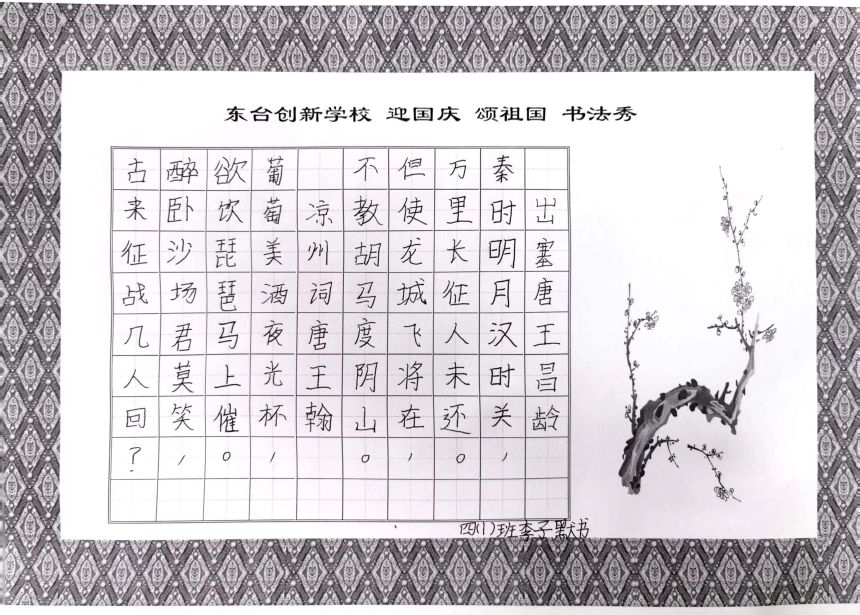 东台创新学校 迎国庆 颂祖国 书法秀
出塞唐王昌龄
秦时明月汉时关，
万里长征人未还。
但使龙城飞将在，
不教胡马度阴山。
凉州词唐王翰
葡萄美酒夜光杯，
欲饮琵琶马上催。
醉卧沙场君莫笑，
古来征战几人回？
四(1)班李子默书